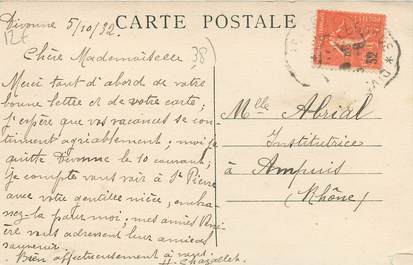 Divonne 5/10/32
CARTE POSTALE
12€
38
Chère Mademoiselle
Merci tout d'abord de votre
bonne lettre et de votre carte;
j'espère que vos vacances se con-
tinuent agréablement; moi je
quitte Divonne le 10 courant;
Je compte vous voir à St Pierre
avec votre gentille nièce; embras-
sez-la pour moi; mes amies
vous adressent leur amical
souvenir.
Bien affectueusement à vous.
H. Chazallet
Melle Abrial
Institutrice
à Ampuis
(Rhône)